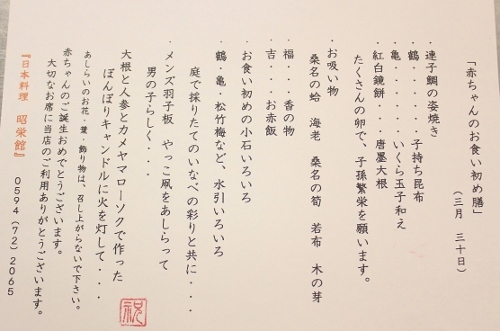 「赤ちゃんのお食い初め膳」
（三月　三十日）
・連子鯛の姿焼き
・鶴・・・・・・子持ち昆布
・亀・・・・・・いくら玉子和え
・紅白鏡餅・・・・唐墨大根
たくさんの卵で、子孫繁栄を願います。
・お吸い物
桑名の蛤　海老　桑名の筍　若布　木の芽
・福・・・香の物
・吉・・・お赤飯
・お食い初めの小石いろいろ
・鶴・亀・松竹梅など、水引いろいろ
庭で採りたてのいなべの彩りと共に・・・
・メンズ羽子板　やっこ凧をあしらって
男の子らしく・・・・
大根と人参とカメヤマローソクで作った
ぼんぼりキャンドルに火を灯して・・・
あしらいのお花・葉・飾り物は、召し上がらないで下さい。
赤ちゃんのご誕生おめでとうございます。
大切なお席に当店のご利用ありがとうございます。
『日本料理　昭栄館』　0594（72）2065
祝